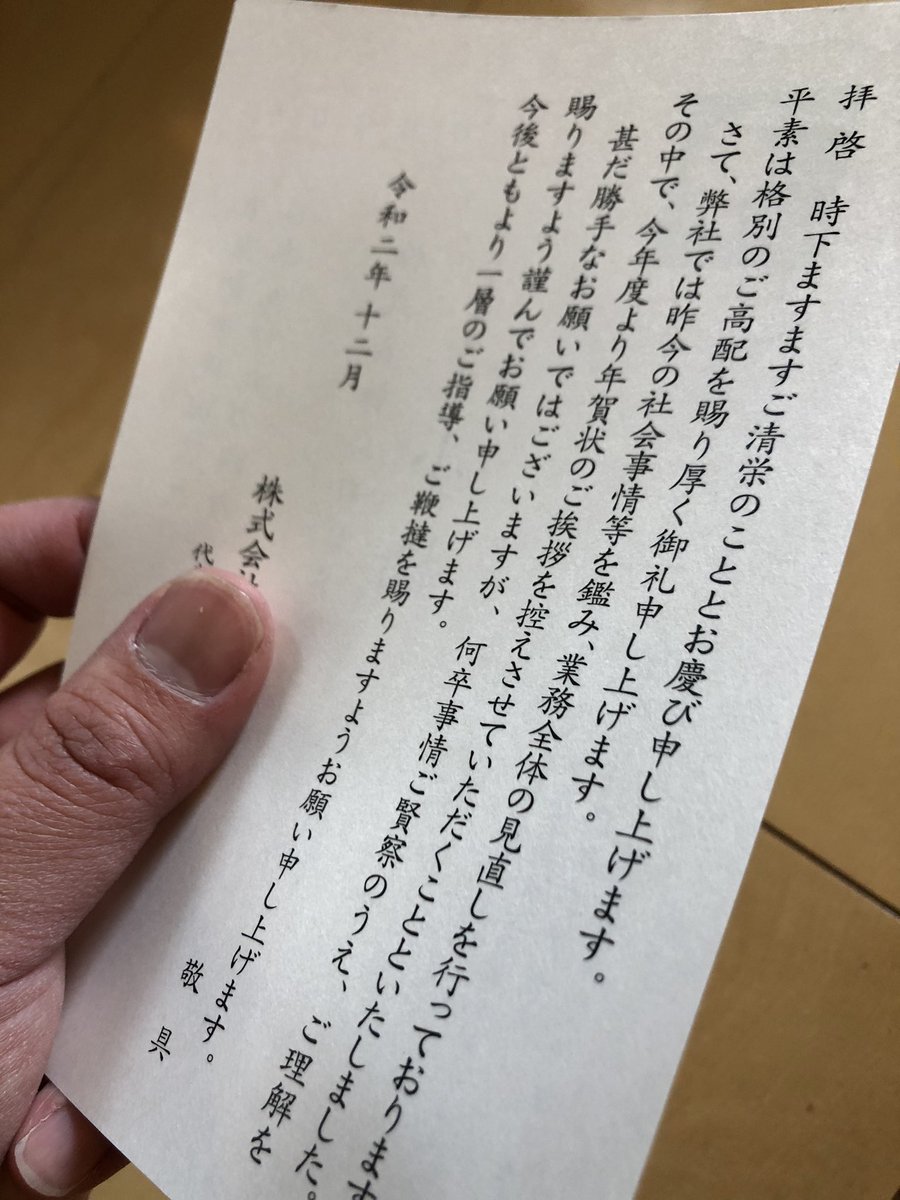 拝啓　時下ますますご清栄のこととお慶び申し上げます。
平素は格別のご高配を賜り厚く御礼申し上げます。
さて、弊社では昨今の社会事情等を鑑み、業務全体の見直しを行っております
その中で、今年度より年賀状のご挨拶を控えさせていただくことといたしました。
甚だ勝手なお願いではございますが、何卒事情ご賢察のうえ、ご理解を
賜りますよう謹んでお願い申し上げます。
今後ともより一層のご指導、ご鞭撻を賜りますようお願い申し上げます。
敬具
令和二年十二月
株式会社
代